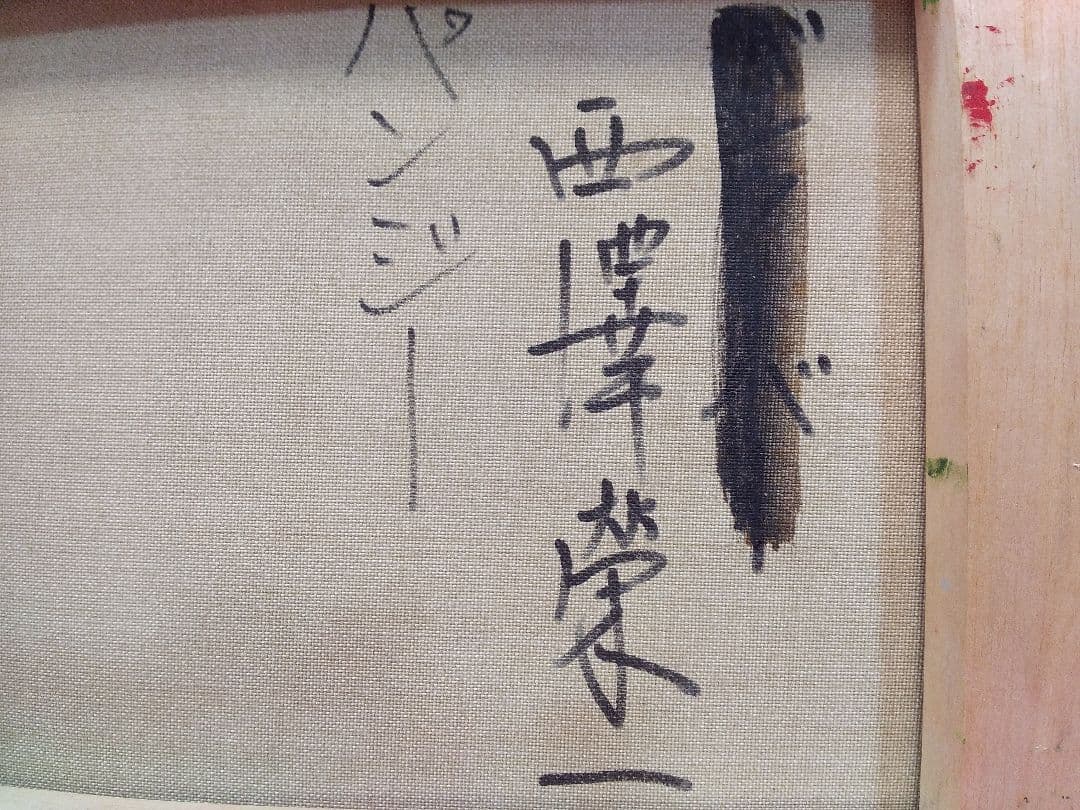 西澤榮一
パンジー